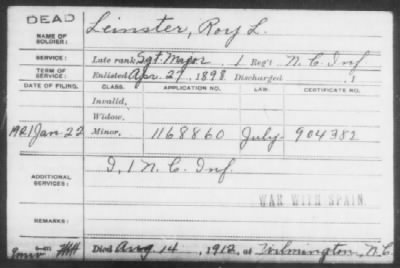 DEAD
NAME OF SOLDIER: Leinster, Roy L.
SERVICE: Late rank, Sgt. Major 1 Reg't N.C. Inf
TERM OF SERVICE: Enlisted Apr. 27, 1898 Discharged , 1
DATE OF FILING. CLASS. APPLICATION NO. LAW. CERTIFICATE NO.
Invalid,
Widow,
1921 Jan-22 Minor, 1168860 July- 904382
ADDITIONAL SERVICES: I, 1 N.C. Inf.
WAR WITH SPAIN.
REMARKS:
Died Aug 14, 1912, at Wilmington, N.C.